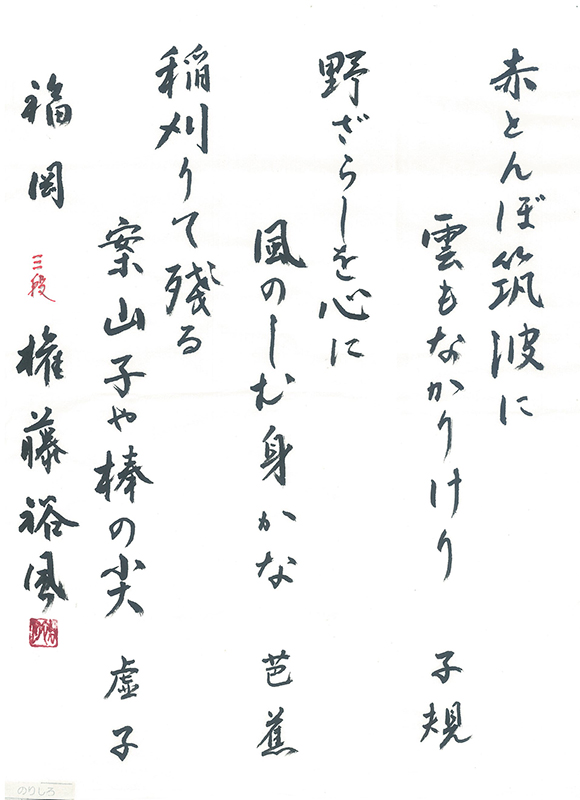 赤とんぼ筑波に
雲もなかりけり 子規
野ざらしを心に
風のしむ身かな 芭蕉
稲刈りて残る
案山子や棒の尖 虚子
福岡 三段 権藤裕風
のりしろ